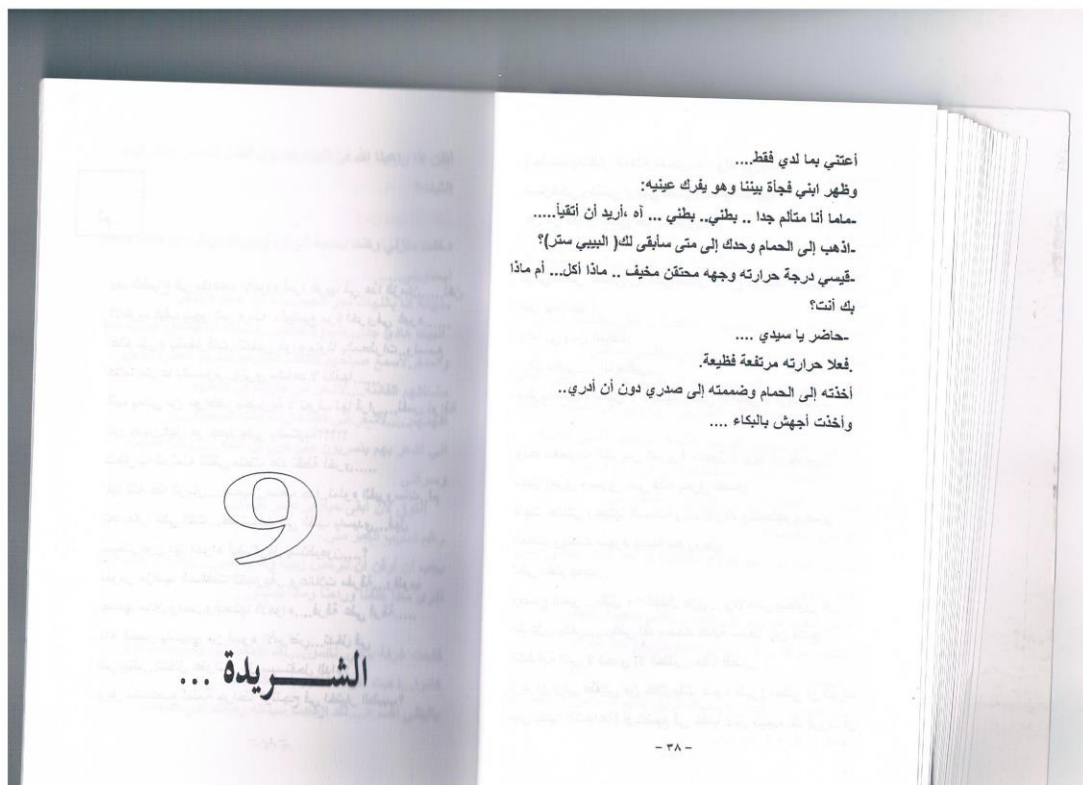 أعتني بما لدي فقط....
وظهر ابني فجأة بيننا وهو يفرك عينيه:
-ماما أنا متألم جدا .. بطني.. بطني ... آه ،أريد أن أتقيأ.....
-اذهب إلى الحمام وحدك إلى متى سأبقى لك( البيبي ستر)؟
-قيسي درجة حرارته وجهه محتقن مخيف .. ماذا أكل... أم ماذا
بك أنت؟
-حاضر يا سيدي ....
.فعلا حرارته مرتفعة فظيعة.
أخذته إلى الحمام وضممته إلى صدري دون أن أدري..
وأخذت أجهش بالبكاء ....
- ٣٨ -
9
الشـــريدة ...